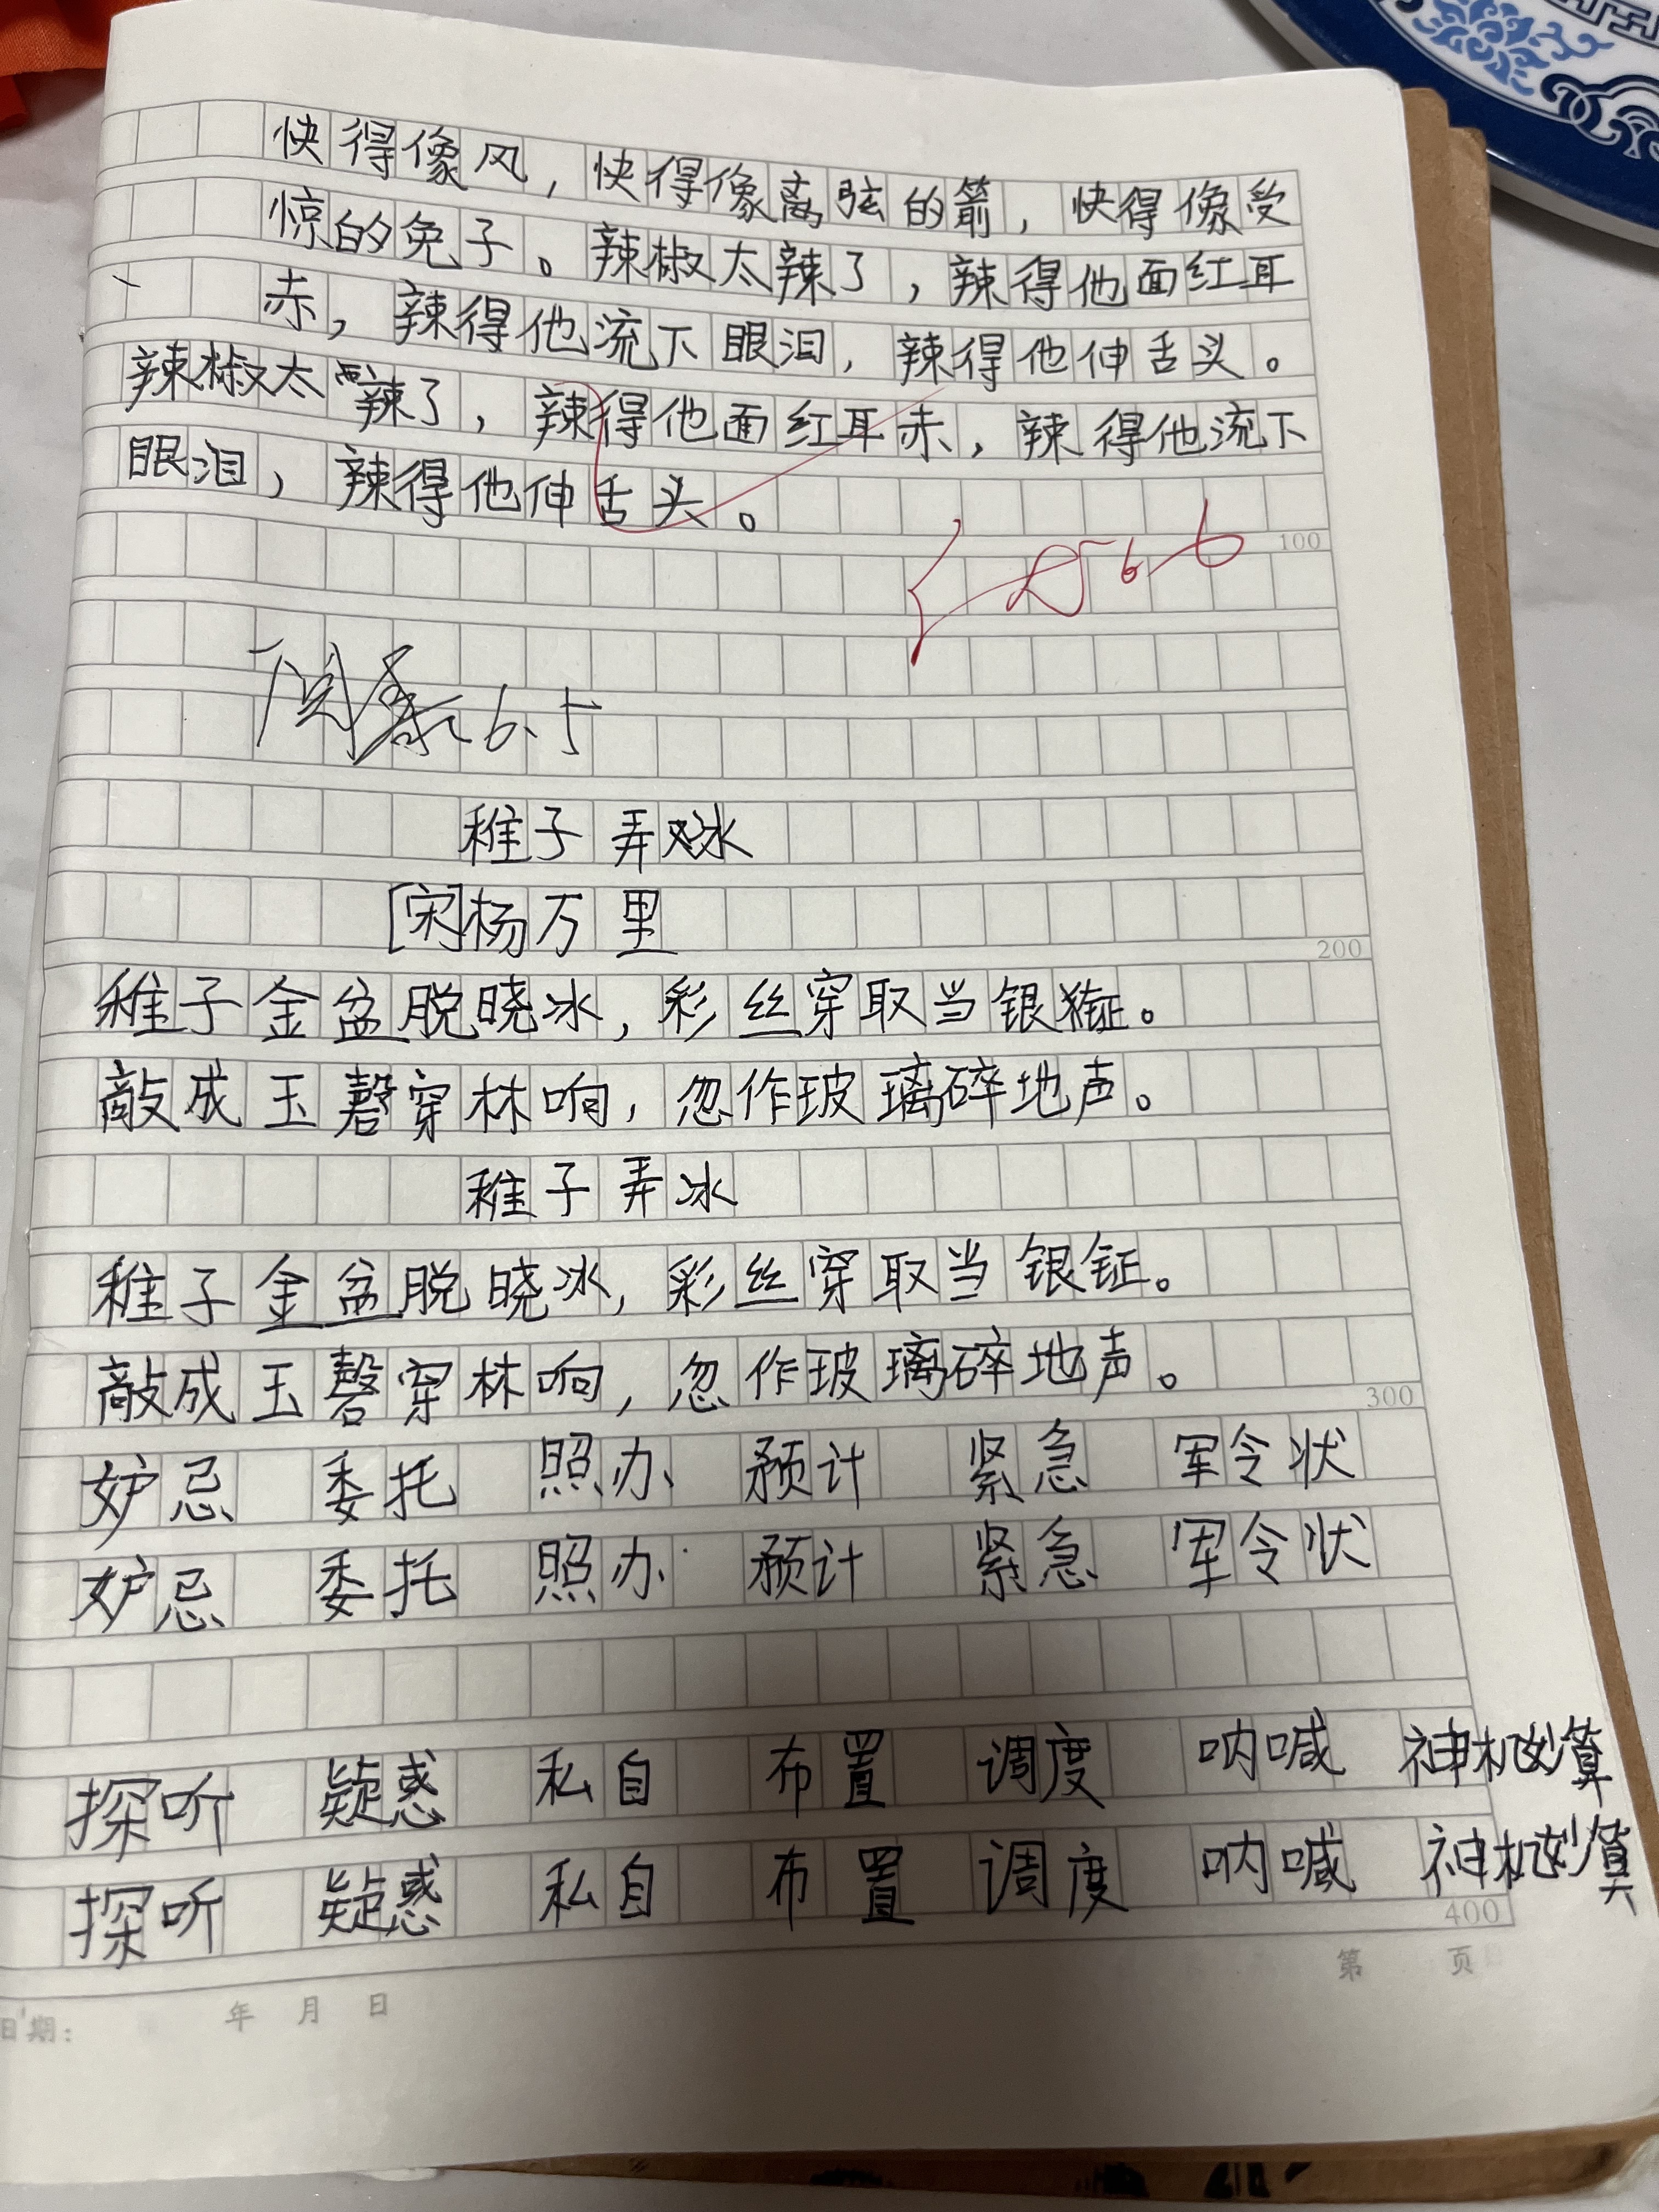 快得像风，快得像离弦的箭，快得像受
惊的兔子。辣椒太辣了，辣得他面红耳
赤，辣得他流下眼泪，辣得他伸舌头。
辣椒太辣了，辣得他面红耳赤，辣得他流下
眼泪，辣得他伸舌头。
100
6.5
稚子弄冰
[宋]杨万里
200
稚子金盆脱晓冰，彩丝穿取当银钲。
敲成玉磬穿林响，忽作玻璃碎地声。
稚子弄冰
稚子金盆脱晓冰，彩丝穿取当银钲。
敲成玉磬穿林响，忽作玻璃碎地声。
300
妒忌 委托 照办 预计 紧急 军令状
妒忌 委托 照办 预计 紧急 军令状
探听 疑惑 私自 布置 调度 呐喊 神机妙算
探听 疑惑 私自 布置 调度 呐喊 神机妙算
400
第 页
日期： 年 月 日